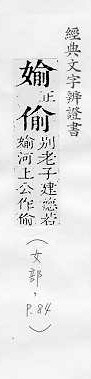 經典文字辨證書
媮正
偷別老子建德若
媮河上公作偷
（女部，P.84）